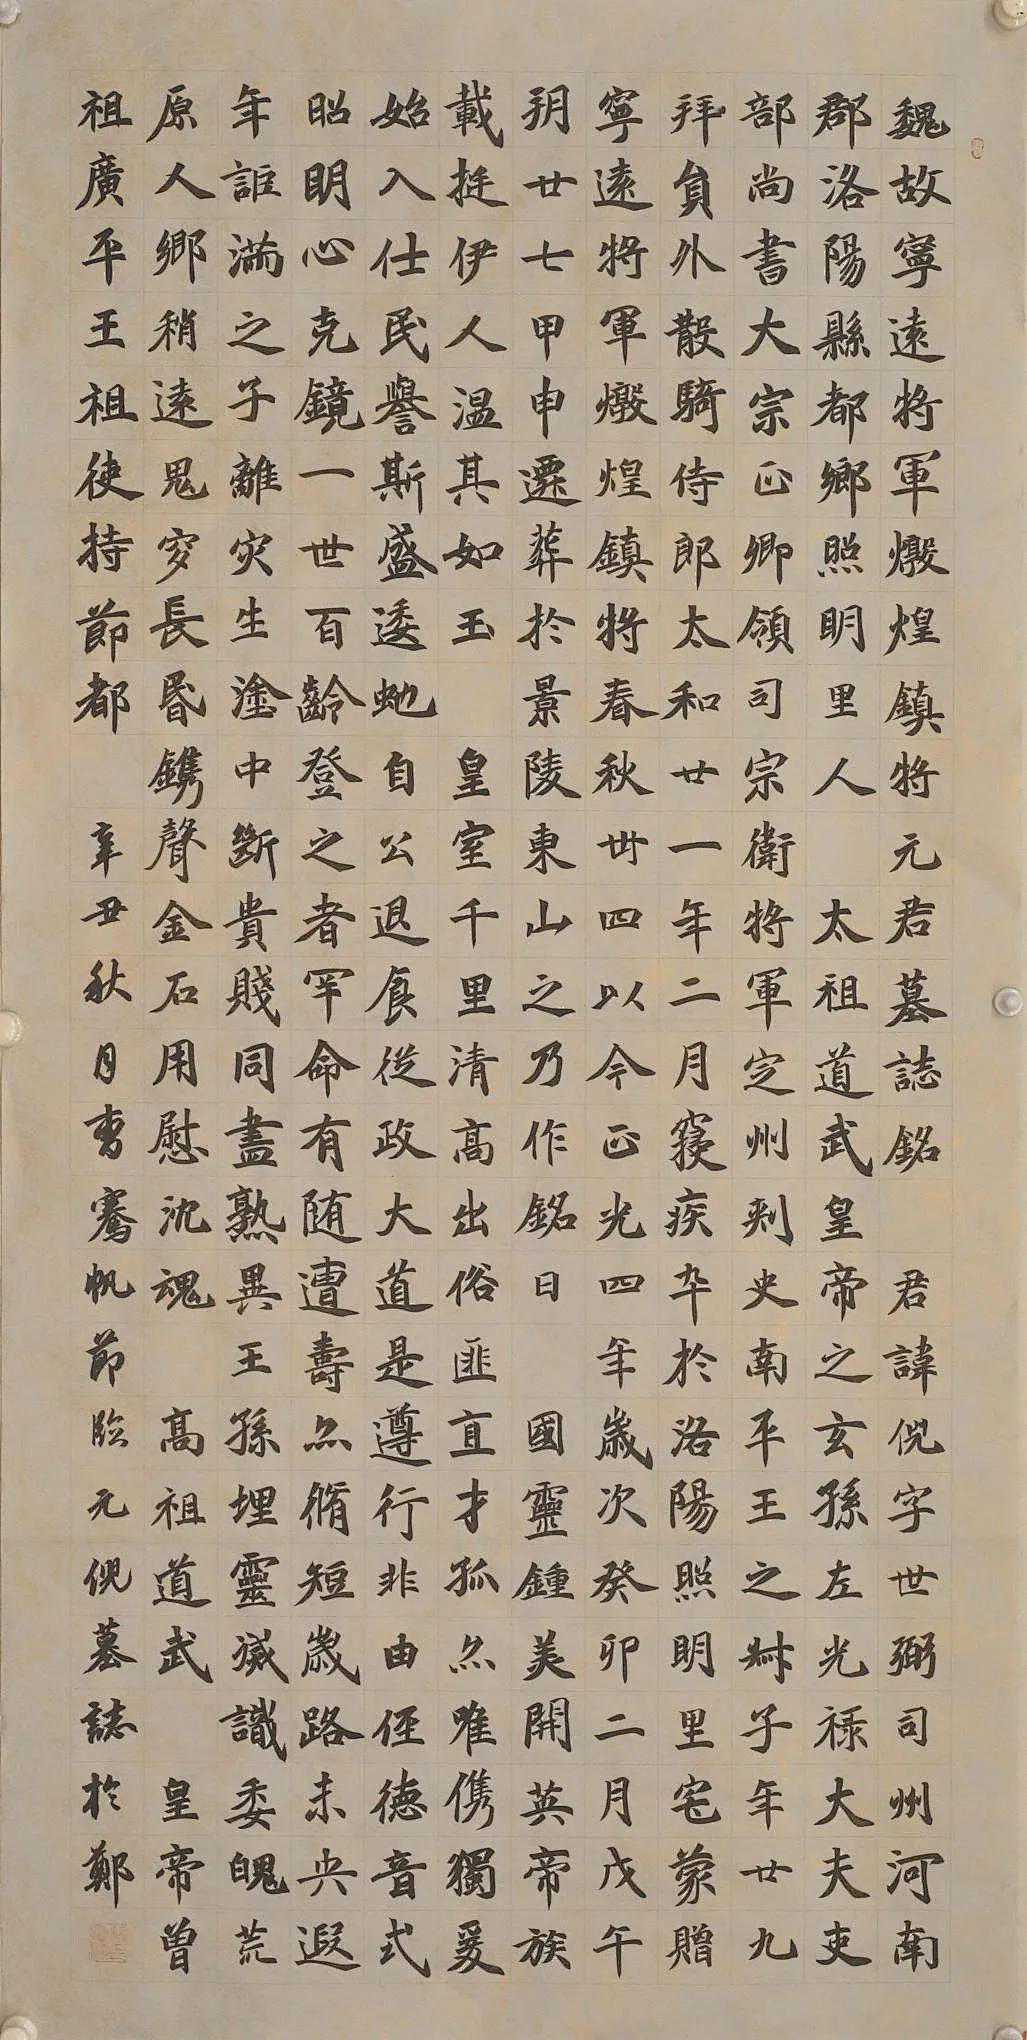 魏故寧遠將軍燉煌鎮將元君墓誌銘君諱倪字世弼司州河南
郡洛陽縣都鄉照明里人太祖道武皇帝之玄孫左光祿大夫吏
部尚書大宗正卿領司宗衛將軍定州刺史南平王之叔子年廿九
拜員外散騎侍郎太和廿一年二月寢疾卒於洛陽照明里宅蒙贈
寧遠將軍燉煌鎮將春秋卅四以今正光四年歲次癸卯二月戊午
朔廿七甲申遷葬於景陵東山之乃作銘曰國靈鍾美開英帝族
載挺伊人溫其如玉皇室千里清高出俗匪直才孤亦唯儁獨爰
始入仕民譽斯盛逶虵自公退食從政大道是遵行非由徑德音式
昭明心克鏡一世百齡登之者罕命有隨遭壽亦脩短歲路未央遐
年詎滿之子離灾生塗中斷貴賤同盡孰異王孫埋靈滅識委魄荒
原人鄉稍遠鬼穸長昏鐫聲金石用慰沈魂高祖道武皇帝曾
祖廣平王祖使持節都辛丑秋月書騫帆節臨元倪墓誌於鄭